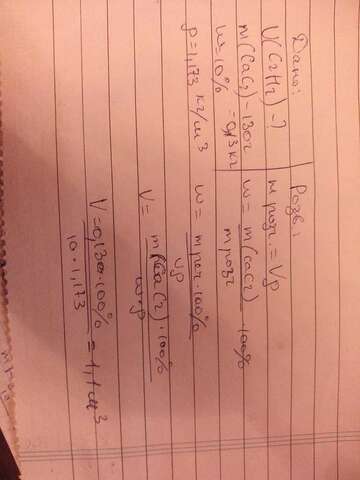 Дано:
V(C2H2) - ?
m(CaC2) - 130г
= 0,13 кг
w = 10%
ρ = 1,173 кг/м3
Розв:
m розч. = Vρ
w = m(CaC2) / m розч · 100%
w = m реч · 100% / Vρ
V = m(CaC2) · 100% / w · ρ
V = 0,130 · 100% / 10 · 1,173 = 1,1 м3